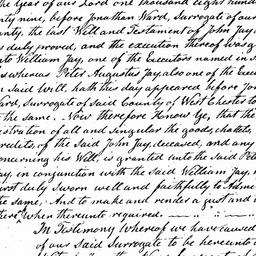 the year of our Lord one thousand eight hund
nty nine, before Jonathan Ward, Surrogate of our
nty, the last Will and Testament of John Jay
s duly proved, and the execution thereof was g
to William Jay, one of the Executors named in s
whereas Peter Augustus Jay, also one of the Exec
said Will, hath this day appeared before Jon
ard, Surrogate of said County of West Chester to
the same. Now therefore Know Ye, that the
istration of all and singular the goods, chattels,
redits of the said John Jay, deceased, and any
oncerning his Will, is granted unto the said Pete
ay, in conjunction with the said William Jay,
irst duly sworn well and faithfully to Admi
the same, And to make and render a just and
there when thereunto required.
In Testimony Whereof we have caused
of our said Surrogate to be hereunto